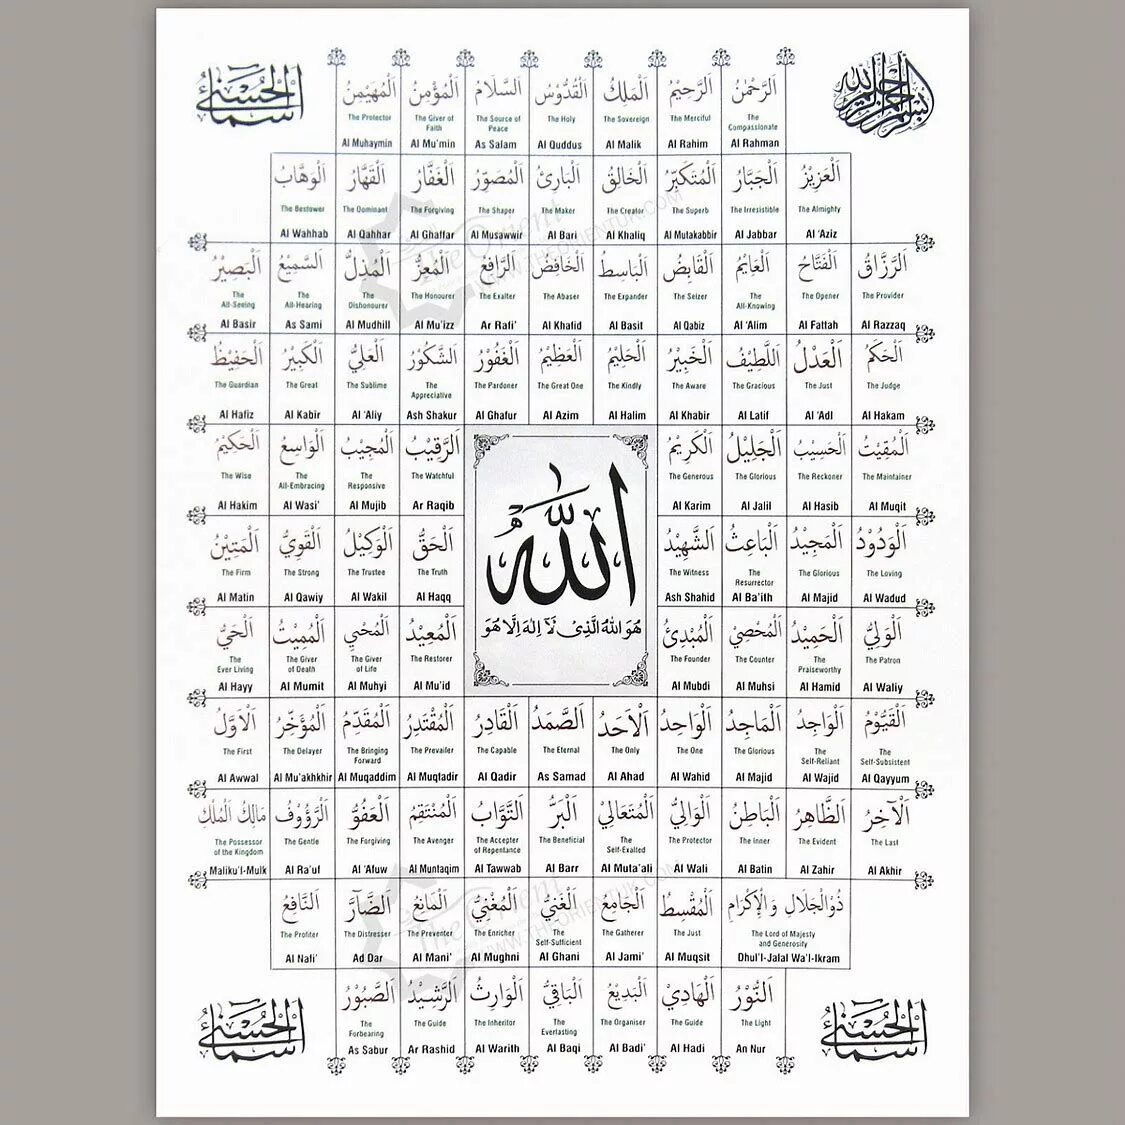 بسم الله الرحمن الرحيم
اَلرَّحْمٰنُ
The
Compassionate
Al Rahman
اَلرَّحِيْمُ
The Merciful
Al Rahim
اَلْمَلِكُ
The Sovereign
Al Malik
اَلْقُدُّوْسُ
The Holy
Al Quddus
اَلسَّلَامُ
The Source of
Peace
As Salam
اَلْمُؤْمِنُ
The Giver of
Faith
Al Mu'min
اَلْمُهَيْمِنُ
The Protector
Al Muhaymin
اسماء الحسنى
اَلْعَزِيْزُ
The Almighty
Al 'Aziz
اَلْجَبَّارُ
The Irresistible
Al Jabbar
اَلْمُتَكَبِّرُ
The Superb
Al Mutakabbir
اَلْخَالِقُ
The Creator
Al Khaliq
اَلْبَارِئُ
The Maker
Al Bari
اَلْمُصَوِّرُ
The Shaper
Al Musawwir
اَلْغَفَّارُ
The Forgiving
Al Ghaffar
اَلْقَهَّارُ
The Dominant
Al Qahhar
اَلْوَهَّابُ
The Bestower
Al Wahhab
اَلرَّزَّاقُ
The Provider
Al Razzaq
اَلْفَتَّاحُ
The Opener
Al Fattah
اَلْعَلِيْمُ
The
All-Knowing
Al 'Alim
اَلْقَابِضُ
The Seizer
Al Qabiz
اَلْبَاسِطُ
The Expander
Al Basit
اَلْخَافِضُ
The Abaser
Al Khafid
اَلرَّافِعُ
The Exalter
Ar Rafi'
اَلْمُعِزُّ
The Honourer
Al Mu'izz
اَلْمُذِلُّ
The
Dishonourer
Al Mudhill
اَلسَّمِيْعُ
The
All-Hearing
As Sami
اَلْبَصِيْرُ
The
All-Seeing
Al Basir
اَلْحَكَمُ
The Judge
Al Hakam
اَلْعَدْلُ
The Just
Al 'Adl
اَللَّطِيْفُ
The Gracious
Al Latif
اَلْخَبِيْرُ
The Aware
Al Khabir
اَلْحَلِيْمُ
The Kindly
Al Halim
اَلْعَظِيْمُ
The Great One
Al Azim
اَلْغَفُوْرُ
The Pardoner
Al Ghafur
اَلشَّكُوْرُ
The
Appreciative
Ash Shakur
اَلْعَلِيُّ
The Sublime
Al 'Aliy
اَلْكَبِيْرُ
The Great
Al Kabir
اَلْحَفِيْظُ
The Guardian
Al Hafiz
اَلْمُقِيْتُ
The Maintainer
Al Muqit
اَلْحَسِيْبُ
The Reckoner
Al Hasib
اَلْجَلِيْلُ
The Glorious
Al Jalil
اَلْكَرِيْمُ
The Generous
Al Karim
اَلرَّقِيْبُ
The Watchful
Ar Raqib
اَلْمُجِيْبُ
The
Responsive
Al Mujib
اَلْوَاسِعُ
The
All-Embracing
Al Wasi'
اَلْحَكِيْمُ
The Wise
Al Hakim
اَلْوَدُوْدُ
The Loving
Al Wadud
اَلْمَجِيْدُ
The Glorious
Al Majid
اَلْبَاعِثُ
The
Resurrector
Al Ba'ith
اَلشَّهِيْدُ
The Witness
Ash Shahid
الله
هُوَ اللهُ الَّذِى لَا اِلٰهَ اِلَّا هُوَ
اَلْحَقُّ
The Truth
Al Haqq
اَلْوَكِيْلُ
The Trustee
Al Wakil
اَلْقَوِيُّ
The Strong
Al Qawiy
اَلْمَتِيْنُ
The Firm
Al Matin
اَلْوَلِيُّ
The Patron
Al Waliy
اَلْحَمِيْدُ
The
Praiseworthy
Al Hamid
اَلْمُحْصِيْ
The Counter
Al Muhsi
اَلْمُبْدِئُ
The Founder
Al Mubdi
اَلْمُعِيْدُ
The Restorer
Al Mu'id
اَلْمُحْيِيْ
The Giver
of Life
Al Muhyi
اَلْمُمِيْتُ
The Giver
of Death
Al Mumit
اَلْحَيُّ
The
Ever Living
Al Hayy
اَلْقَيُّوْمُ
The
Self-Subsistent
Al Qayyum
اَلْوَاجِدُ
The
Self-Reliant
Al Wajid
اَلْمَاجِدُ
The Glorious
Al Majid
اَلْوَاحِدُ
The One
Al Wahid
اَلْاَحَدُ
The Only
Al Ahad
اَلصَّمَدُ
The Eternal
As Samad
اَلْقَادِرُ
The Capable
Al Qadir
اَلْمُقْتَدِرُ
The Prevailer
Al Muqtadir
اَلْمُقَدِّمُ
The Bringing
Forward
Al Muqaddim
اَلْمُؤَخِّرُ
The Delayer
Al Mu'akhkhir
اَلْاَوَّلُ
The First
Al Awwal
اَلْآخِرُ
The Last
Al Akhir
اَلظَّاهِرُ
The Evident
Al Zahir
اَلْبَاطِنُ
The Inner
Al Batin
اَلْوَالِيُ
The Protector
Al Wali
اَلْمُتَعَالِيْ
The
Self-Exalted
Al Muta'ali
اَلْبَرُّ
The Beneficial
Al Barr
اَلتَّوَّابُ
The Accepter
of Repentance
Al Tawwab
اَلْمُنْتَقِمُ
The Avenger
Al Muntaqim
اَلْعَفُوُّ
The Forgiving
Al 'Afuw
اَلرَّؤُوْفُ
The Gentle
Al Ra'uf
مَالِكُ الْمُلْكِ
The Possessor
of the Kingdom
Maliku'l-Mulk
ذُوالْجَلَالِ وَالْاِكْرَامِ
The Lord of Majesty
and Generosity
Dhul'l-Jalal Wa'l-Ikram
اَلْمُقْسِطُ
The Just
Al Muqsit
اَلْجَامِعُ
The Gatherer
Al Jami'
اَلْغَنِيُّ
The
Self-Sufficient
Al Ghani
اَلْمُغْنِيُّ
The Enricher
Al Mughni
اَلْمَانِعُ
The Preventer
Al Mani'
اَلضَّارُّ
The Distresser
Ad Dar
اَلنَّافِعُ
The Profiter
Al Nafi'
اسماء الحسنى
اَلنُّوْرُ
The Light
An Nur
اَلْهَادِيْ
The Guide
Al Hadi
اَلْبَدِيْعُ
The Organiser
Al Badi'
اَلْبَاقِيْ
The
Everlasting
Al Baqi
اَلْوَارِثُ
The Inheritor
Al Warith
اَلرَّشِيْدُ
The Guide
Ar Rashid
اَلصَّبُوْرُ
The
Forbearing
As Sabur
اسماء الحسنى